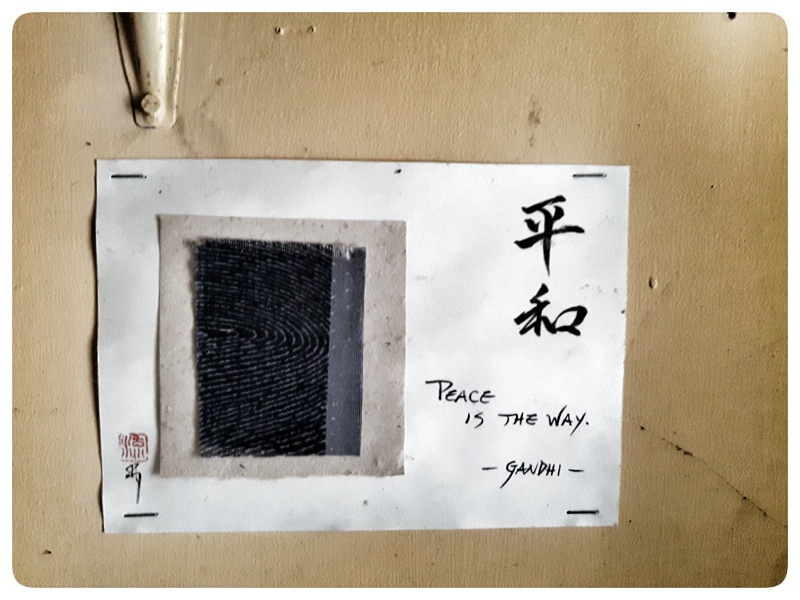 平和
PEACE
IS THE WAY.
- GANDHI -